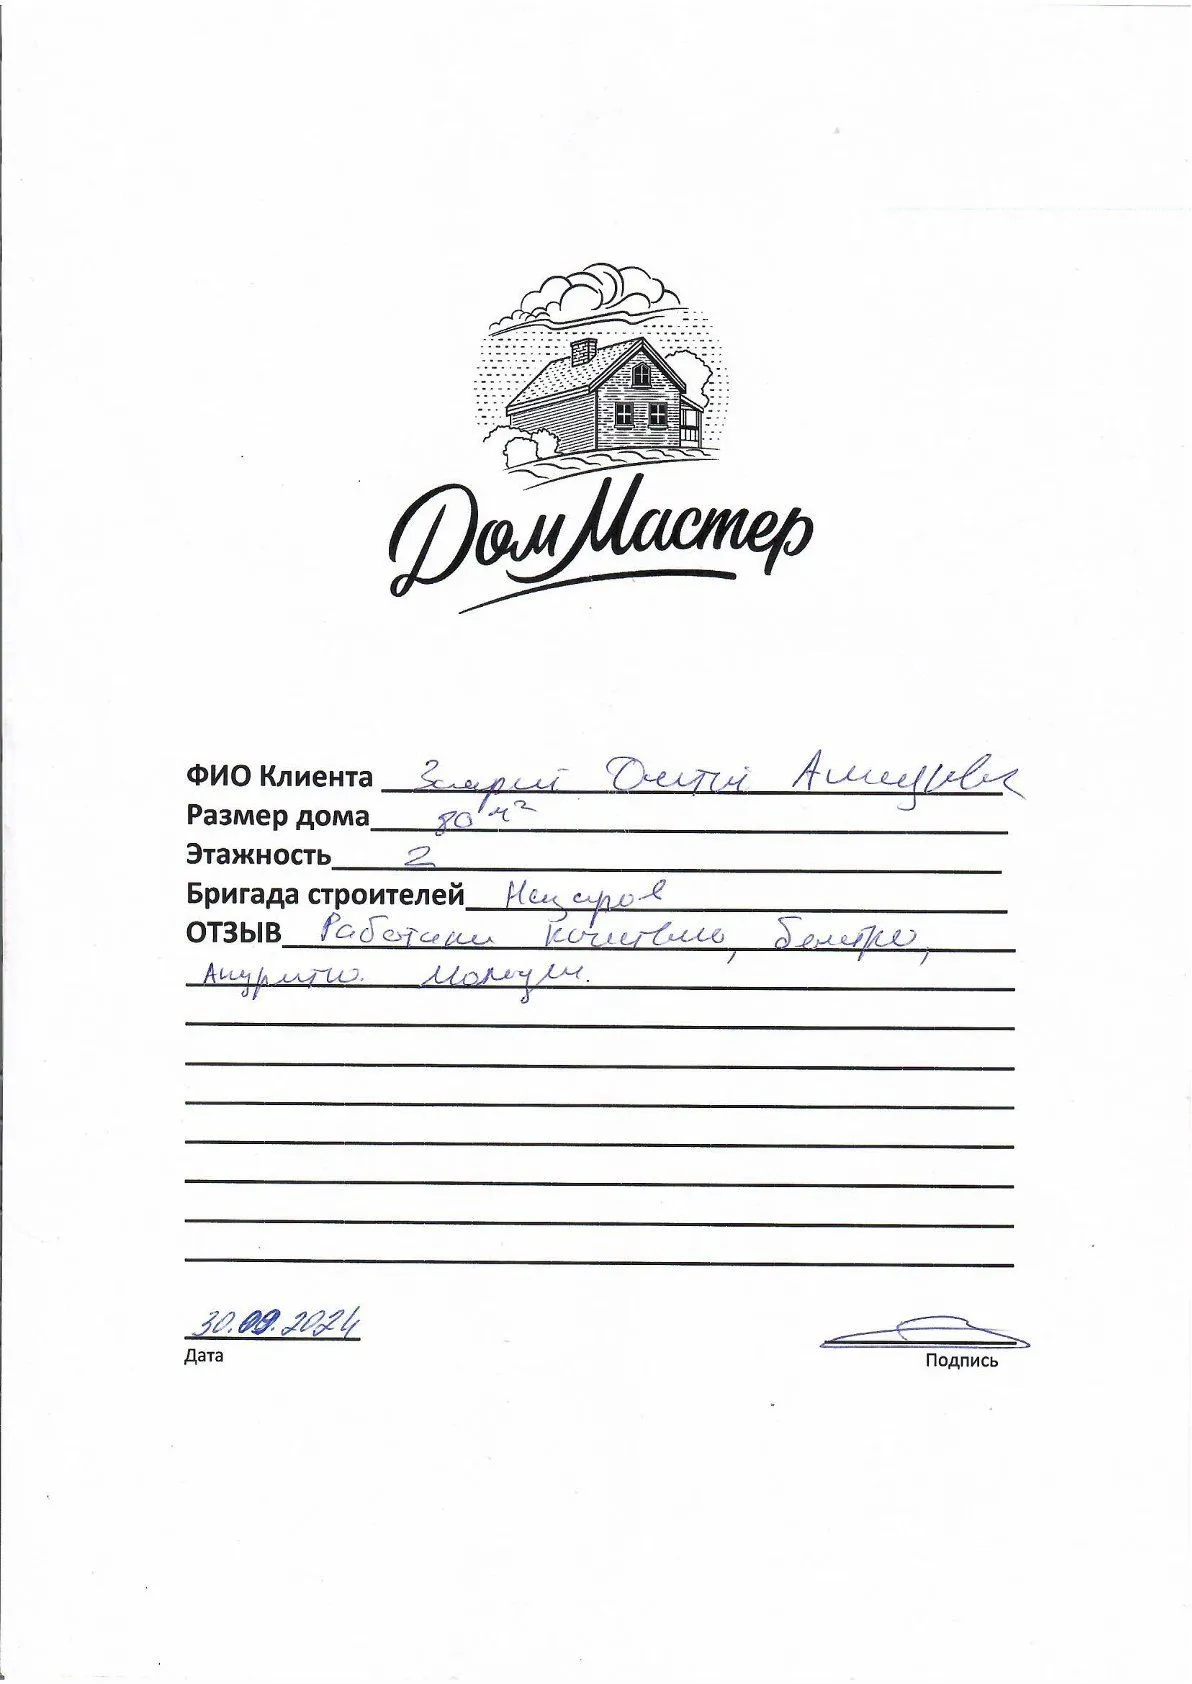 Дом Мастер
ФИО Клиента
Размер дома 80 м²
Этажность 2
Бригада строителей
ОТЗЫВ Работали качественно, быстро,
Аккуратно. Молодцы.
30.09.2024
Дата
Подпись